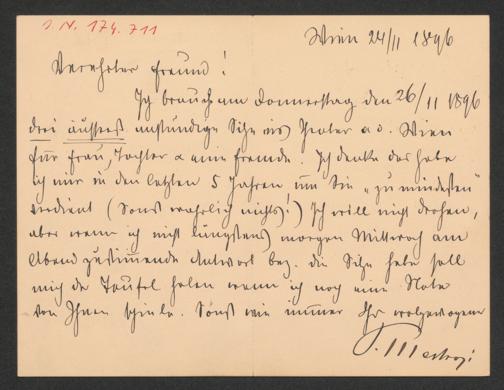 I. N. 174.711
Wien 24/11 1896
Verehrter Freund!
Ich brauche am Donnerstag den 26/11 1896
drei äußerst anständige Sitze ins Theater a. d. Wien
für Frau, Tochter & eine Fremde. Ich denke das habe
ich mir in den letzten 5 Jahren um Sie „zu mindesten"
verdient (Sonst wahrlich nichts!) Ich will nicht drohen,
aber wenn ich nicht längstens morgen Mittwoch am
Abend zustimmende Antwort bez. die Sitze habe soll
mich der Teufel holen wenn ich noch eine Note
von Ihnen spiele. Sonst wie immer Ihr wolgewogener